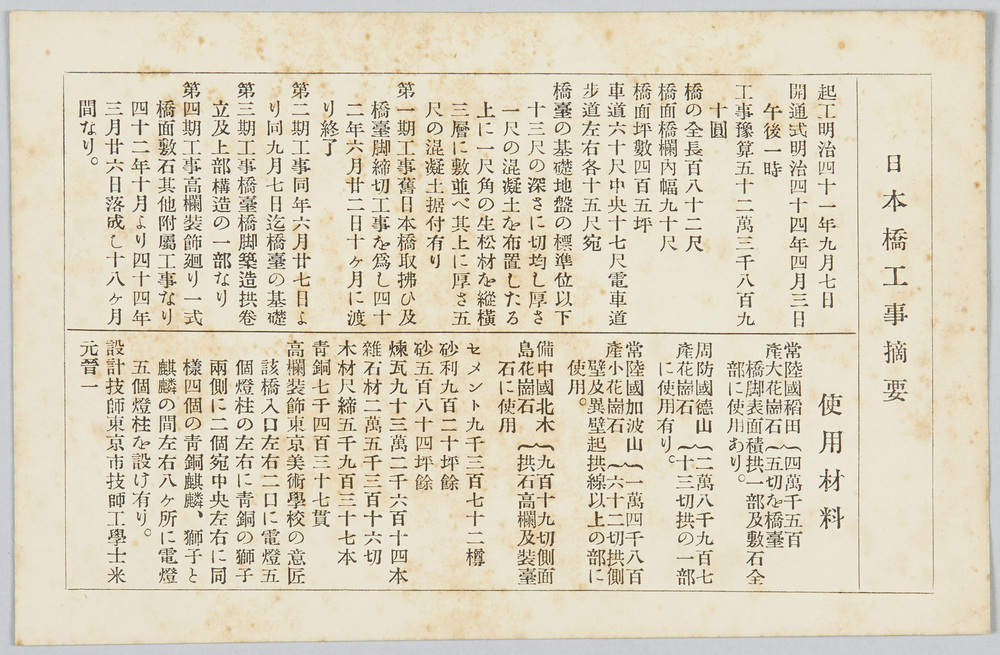 日本橋工事摘要
起工明治四十一年九月七日
開通式明治四十四年四月三日
午後一時
工事豫算五十二萬三千八百九
十圓
橋の全長百八十二尺
橋面橋欄內幅九十尺
橋面坪數四百五坪
車道六十尺中央十七尺電車道
步道左右各十五尺宛
橋臺の基礎地盤の標準位以下
十三尺の深さに切均し厚さ
一尺の混凝土を布置したる
上に一尺角の生松材を縱橫
三層に敷並べ其上に厚さ五
尺の混凝土据付有り
第一期工事舊日本橋取拂ひ及
橋臺脚締切工事を爲し四十
二年六月廿二日十ヶ月に渡
り終了
第二期工事同年六月廿七日よ
り同九月七日迄橋臺の基礎
第三期工事橋臺橋脚築造拱卷
立及上部構造の一部なり
第四期工事高欄裝飾廻り一式
橋面敷石其他附屬工事なり
四十二年十月より四十四年
三月廿六日落成し十八ヶ月
間なり。
使用材料
常陸國稻田
產大花崗石
四萬千五百
五切を橋臺
橋脚表面積拱一部及敷石全
部に使用あり。
周防國德山
產花崗石
二萬八千九百七
十三切拱の一部
に使用有り。
常陸國加波山
產小花崗石
一萬四千八百
六十二切拱側
壁及異壁起拱線以上の部に
使用。
備中國北木
島花崗石
九百十九切側面
拱石高欄及裝臺
石に使用
セメント九千三百七十二樽
砂利九百二十坪餘
砂五百八十四坪餘
煉瓦九十三萬二千六百十四本
雜石材二萬五千三百十六切
木材尺締五千九百三十七本
靑銅七千四百三十七貫
高欄裝飾東京美術學校の意匠
該橋入口左右二口に電燈五
個燈柱の左右に靑銅の獅子
兩側に二個宛中央左右に同
樣四個の靑銅麒麟、獅子と
麒麟の間左右八ヶ所に電燈
五個燈柱を設け有り。
設計技師東京市技師工學士米
元晉一